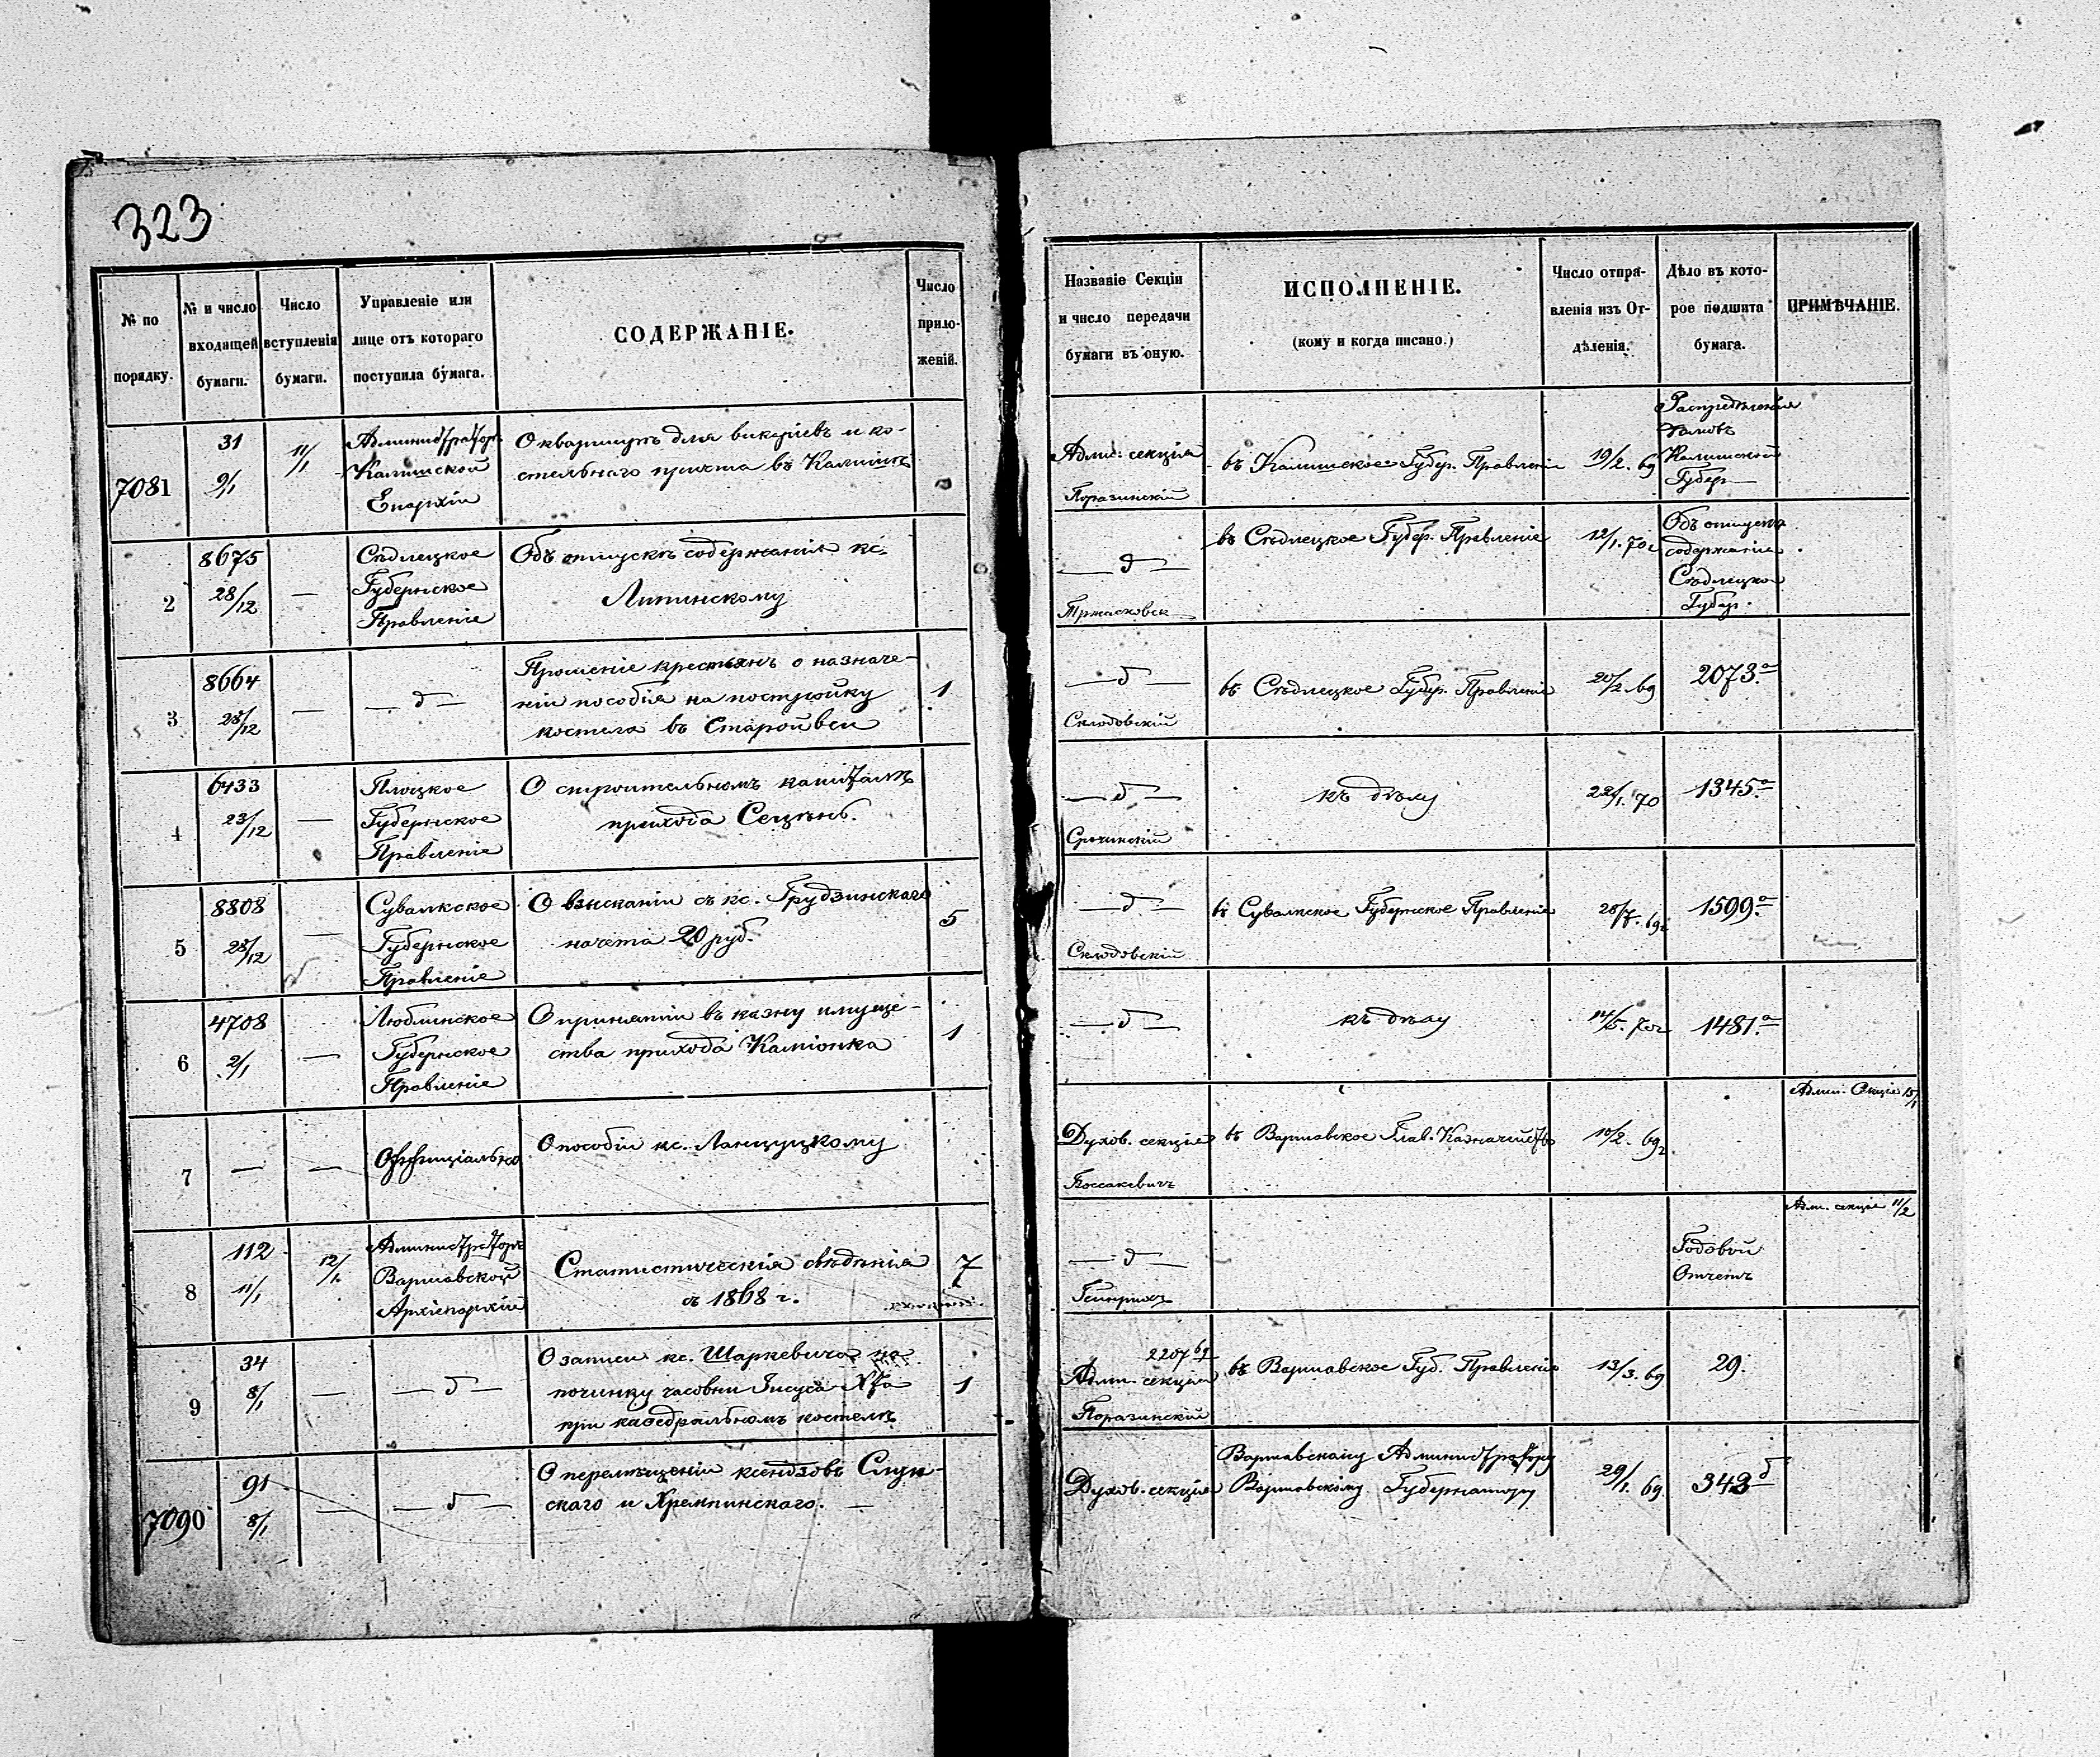 323
№ по порядку.
№ и число входящей бумаги.
Число вступленія бумаги.
Управленіе или лице отъ котораго поступила бумага.
СОДЕРЖАНІЕ.
Число приложеній.
Названіе Секціи и число передачи бумаги въ оную.
ИСПОЛНЕНІЕ.
(кому и когда писано.)
Число отправленія изъ Отдѣленія.
Дѣло въ которое подшита бумага.
ПРИМѢЧАНІЕ.
7081
31
9/1
11/1
Администраторъ
Калишской
Епархіи
О квартирѣ для викаріевъ и ко-
стельнаго причта въ Калишѣ
Адми: секція
Поразинскій
въ Калишское Губер. Правленіе
19/2. 69
Калишской
Губер
2
8675
28/12
—
Сѣдлецкое
Губернское
Правленіе
Объ отпускѣ содержанія кс.
Липинскому
— д —
въ Сѣдлецкое Губер. Правленіе
12/1. 70 г
Объ отпускѣ
содержанія
Сѣдлецкой
Губер.
3
8664
28/12
—
— д —
Прошеніе крестьянъ о назначе-
ніи пособія на постройку
костела въ Старой вси
1
— д —
Склодовскій
въ Сѣдлецкое Губер. Правленіе
20/2. 69
2073.а
4
6433
23/12
—
Плоцкое
Губернское
Правленіе
О строительномъ капиталѣ
прихода Сецѣнь.
— д —
Срочинскій
къ дѣлу
22/1. 70
1345.а
5
8808
28/12
—
Сувалкское
Губернское
Правленіе
О взысканіи съ кс. Грудзинскаго
начета 20 руб.
5
— д —
Склодовскій
въ Сувалкское Губернское Правленіе
28/7. 69 г
1599.а
6
4708
2/1
—
Люблинское
Губернское
Правленіе
О принятіи въ казну имуще-
ства прихода Каміонка
1
— д —
къ дѣлу
14/5. 70 г
1481.а
7
—
—
Оффиціально
О пособіи кс. Ланцуцкому
Духов. секція
Коссакевичъ
въ Варшавское Глав. Казначейство
10/2. 69 г
Адми. Секція 15/1
8
112
11/1
12/1
Администраторъ
Варшавской
Архіепархіи
Статистическія свѣдѣнія
съ 1868 г.
7
— д —
Гейнрихъ
Годовой
Отчетъ
Адм. секціи 11/2
9
34
8/1
—
— д —
О записи кс. Шаркевича на
починку часовни Іисуса Хта
при каѳедральномъ костелѣ
1
2207 69
Адми. секція
Поразинскій
въ Варшавское Губ. Правленіе
13/3. 69
29.
7090
91
8/1
—
— д —
О перемѣщеніи ксендзовъ Слуп-
скаго и Хремпинскаго. —
Духов. секція
Варшавскому Администратору
Варшавскому Губернатору
29/1. 69
343 б